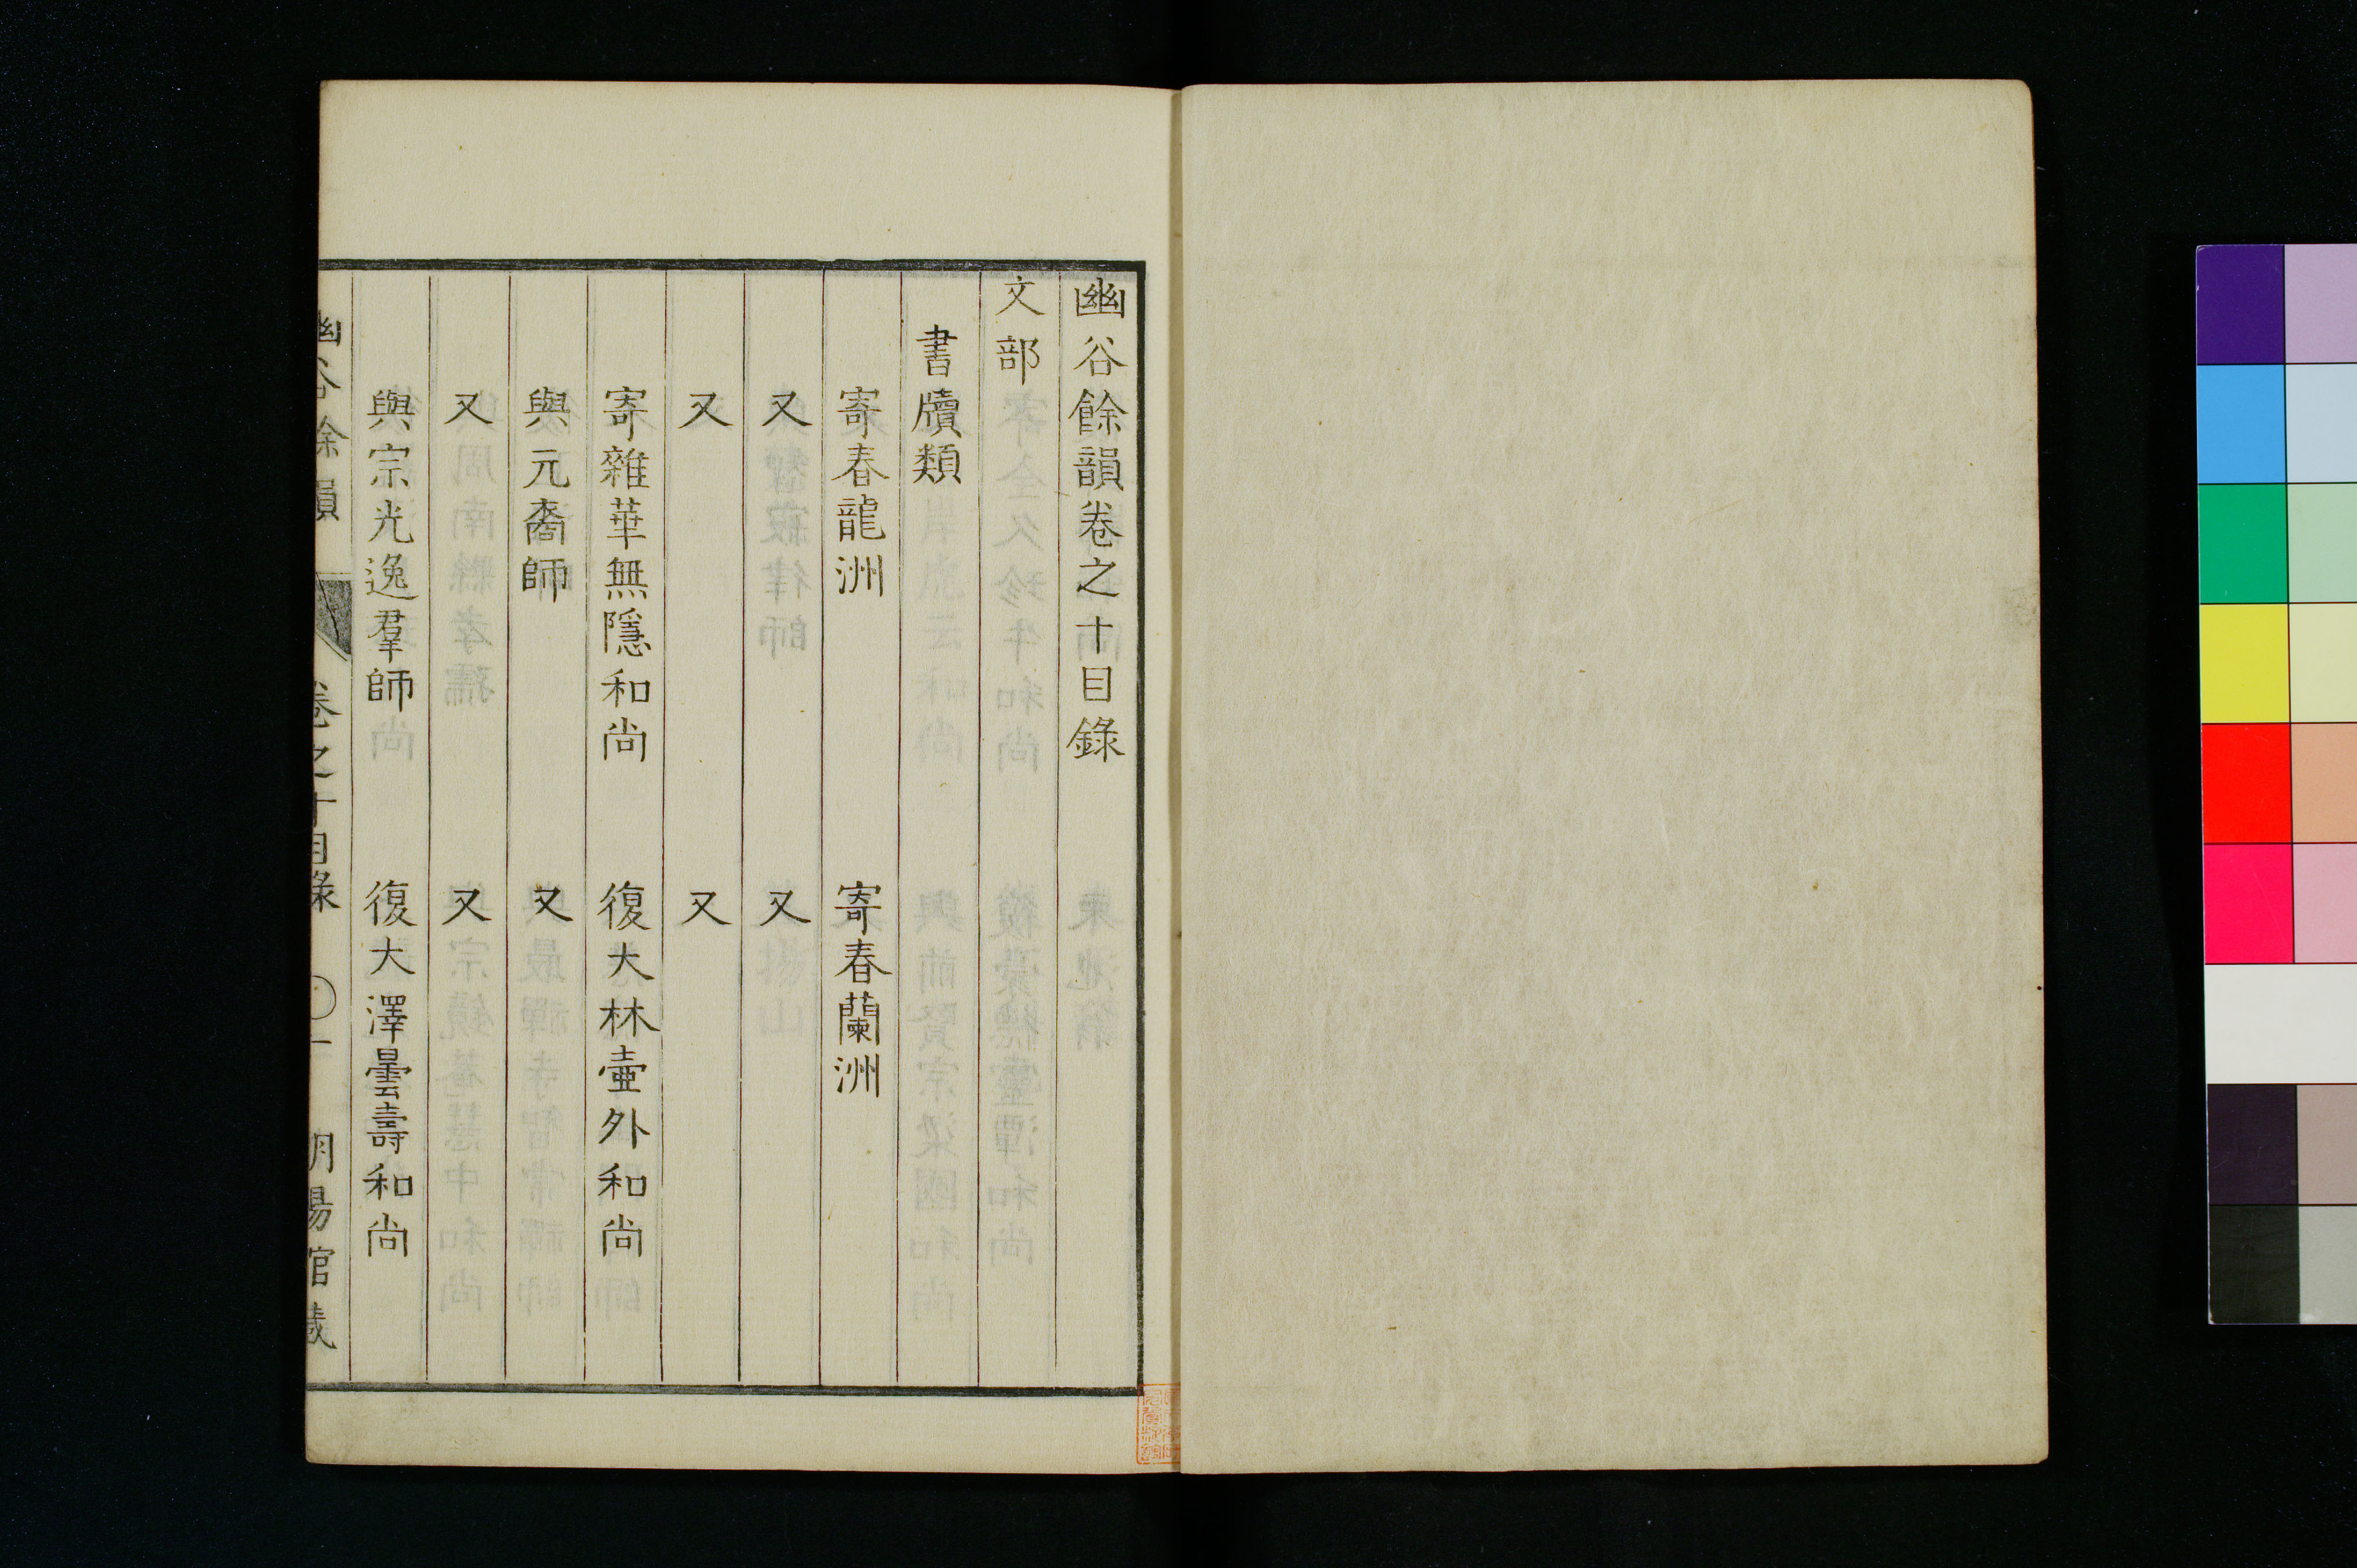 幽谷餘韻卷之十目錄
文部
書牘類
寄春龍洲　寄春蘭洲
又　又
又　又
寄雜華無隱和尚　復大林壷外和尚
與元裔師　又
又　又
與宗光逸羣師　復大澤曇壽和尚
幽谷餘韻　卷之十目錄　一　明陽館藏